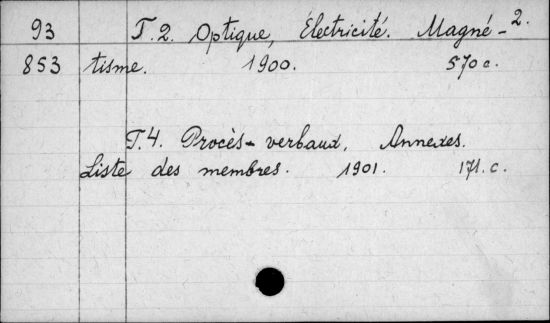 93 T.2. Optique, Électricité. Magné- 2.
853 tisme. 1900. 570 c.
T.4. Procès-verbaux, Annexes.
Liste des membres. 1901. 171. c.